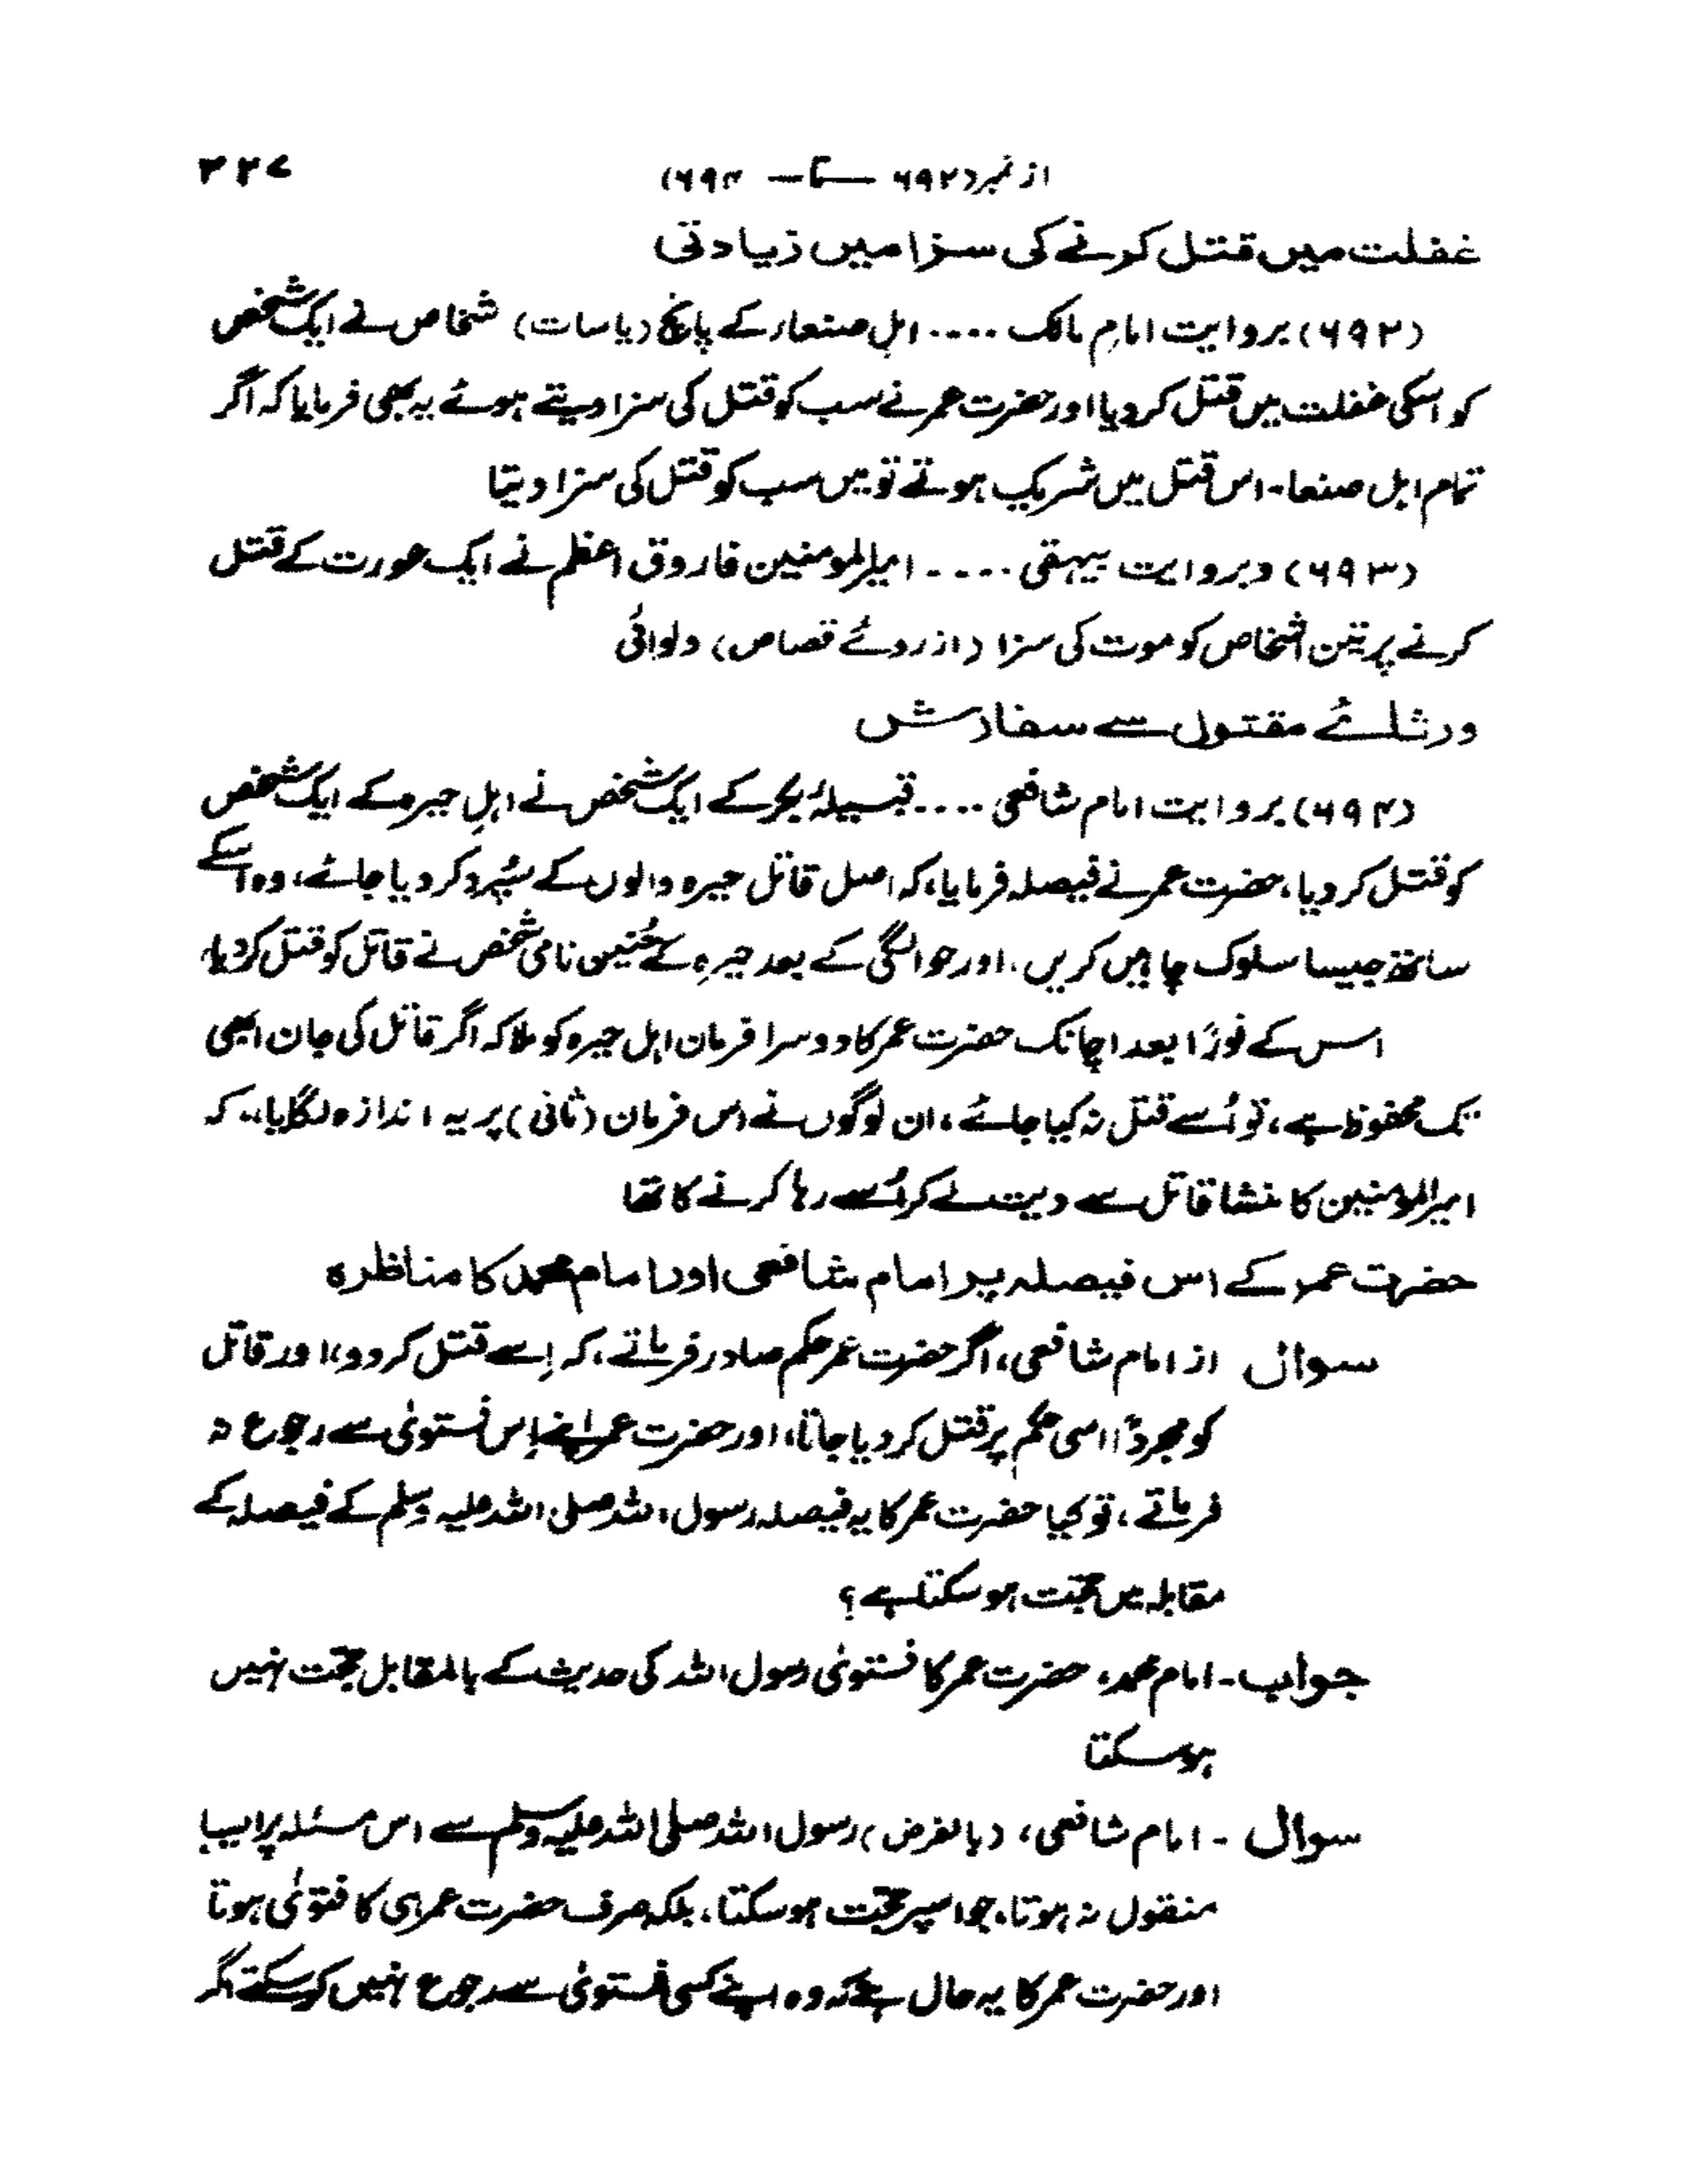 از نمبر (۶۹۲ — تا — ۶۹۴) ۳۲۷
غفلت میں قتل کرنے کی سزا میں زیادتی
(۶۹۲) بروایت امامِ مالک .... اہلِ صنعار کے پانچ (یا سات) شخاص نے ایک شخص
کو اسکی غفلت میں قتل کر دیا اور حضرت عمر نے سب کو قتل کی سزا دیتے ہوئے یہ بھی فرمایا کہ اگر
تمام اہل صنعا۔ اس قتل میں شریک ہوتے تو میں سب کو قتل کی سزا دیتا
(۶۹۳) و بروایت بیہقی .... امیر المومنین فاروق اعظم نے ایک عورت کے قتل
کرنے پر تین اشخاص کو موت کی سزا (از روئے قصاص) دلوائی
ورثائے مقتول سے سفارش
(۶۹۴) بروایت امام شافعی .... قبیلۂ بکر کے ایک شخص نے اہلِ حیرہ کے ایک شخص
کو قتل کر دیا، حضرت عمر نے فیصلہ فرمایا، کہ اصل قاتل حیرہ والوں کے سُپرد کر دیا جائے، وہ اسکے
ساتھ جیسا سلوک چاہیں کریں، اور حوالگی کے بعد حیرہ کے حُنین نامی شخص نے قاتل کو قتل کر دیا،
اس کے فورًا بعد اچانک حضرت عمر کا دوسرا فرمان اہل حیرہ کو ملا کہ اگر قاتل کی جان ابھی
تک محفوظ ہے، تو اُسے قتل نہ کیا جائے، ان لوگوں نے اس فرمان (ثانی) پر یہ اندازہ لگایا، کہ
امیر المومنین کا منشا قاتل سے دیت لے کر اُسے رہا کرنے کا تھا
حضرت عمر کے اس فیصلہ پر امام شافعی اور امام محمد کا مناظرہ
سوال از امام شافعی، اگر حضرت عمر حکم صادر فرماتے، کہ اِسے قتل کر دو، اور قاتل
کو مجردً ا اسی حکم پر قتل کر دیا جاتا، اور حضرت عمر اپنے اِس فتویٰ سے رجوع نہ
فرماتے، تو کیا حضرت عمر کا یہ فیصلہ رسول اللہ صلی اللہ علیہ وسلم کے فیصلہ کے
مقابلہ میں حجّت ہو سکتا ہے؟
جواب۔ امام محمد، حضرت عمر کا فتویٰ رسول اللہ کی حدیث کے بالمقابل حجّت نہیں
ہو سکتا
سوال ۔ امام شافعی، (بالفرض) رسول اللہ صلی اللہ علیہ وسلم سے اس مسئلہ پر ایسا
منقول نہ ہوتا، جو اسپر حجّت ہو سکتا، بلکہ صرف حضرت عمر ہی کا فتویٰ ہوتا
اور حضرت عمر کا یہ حال ہے کہ وہ اپنے کسی فتویٰ سے رجوع نہیں کر سکتے مگر